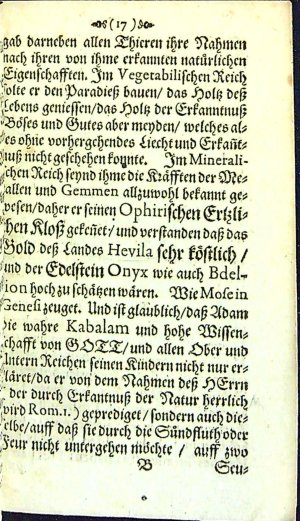 (17)
gab darneben allen Thieren ihre Nahmen
nach ihren von ihme erkannten natürlichen
Eigenschafften. Im Vegetabilischen Reich
olte er den Paradieß bauen/ das Holtz deß
Lebens geniessen/ das Holtz der Erkanntnuß
Böses und Gutes aber meyden/ welches al-
es ohne vorhergehendes Liecht und Erkañt-
nuß nicht geschehen konnte. Im Minerali-
chen Reich seynd ihme die Kräfften der Me-
allen und Gemmen allzuwohl bekannt ge-
wesen/ daher er seinen Ophirischen Ertzli-
hen Kloß gekeñet/ und verstanden daß das
Gold deß Landes Hevila sehr köstlich/
und der Edelstein Onyx wie auch Bdel-
ion hoch zu schätzen wären. Wie Mose in
Genesi zeuget. Und ist glaublich/ daß Adam
die wahre Kabalam und hohe Wissen-
chafft von GOTT/ und allen Ober und
Intern Reichen seinen Kindern nicht nur er-
läret/ da er von dem Nahmen deß HErrn
der durch Erkantnuß der Natur herrlich
wird Rom. 1.) geprediget/ sondern auch die-
elbe/ auff daß sie durch die Sündfluth oder
Feur nicht untergehen möchte/ auff zwo
B Seu-